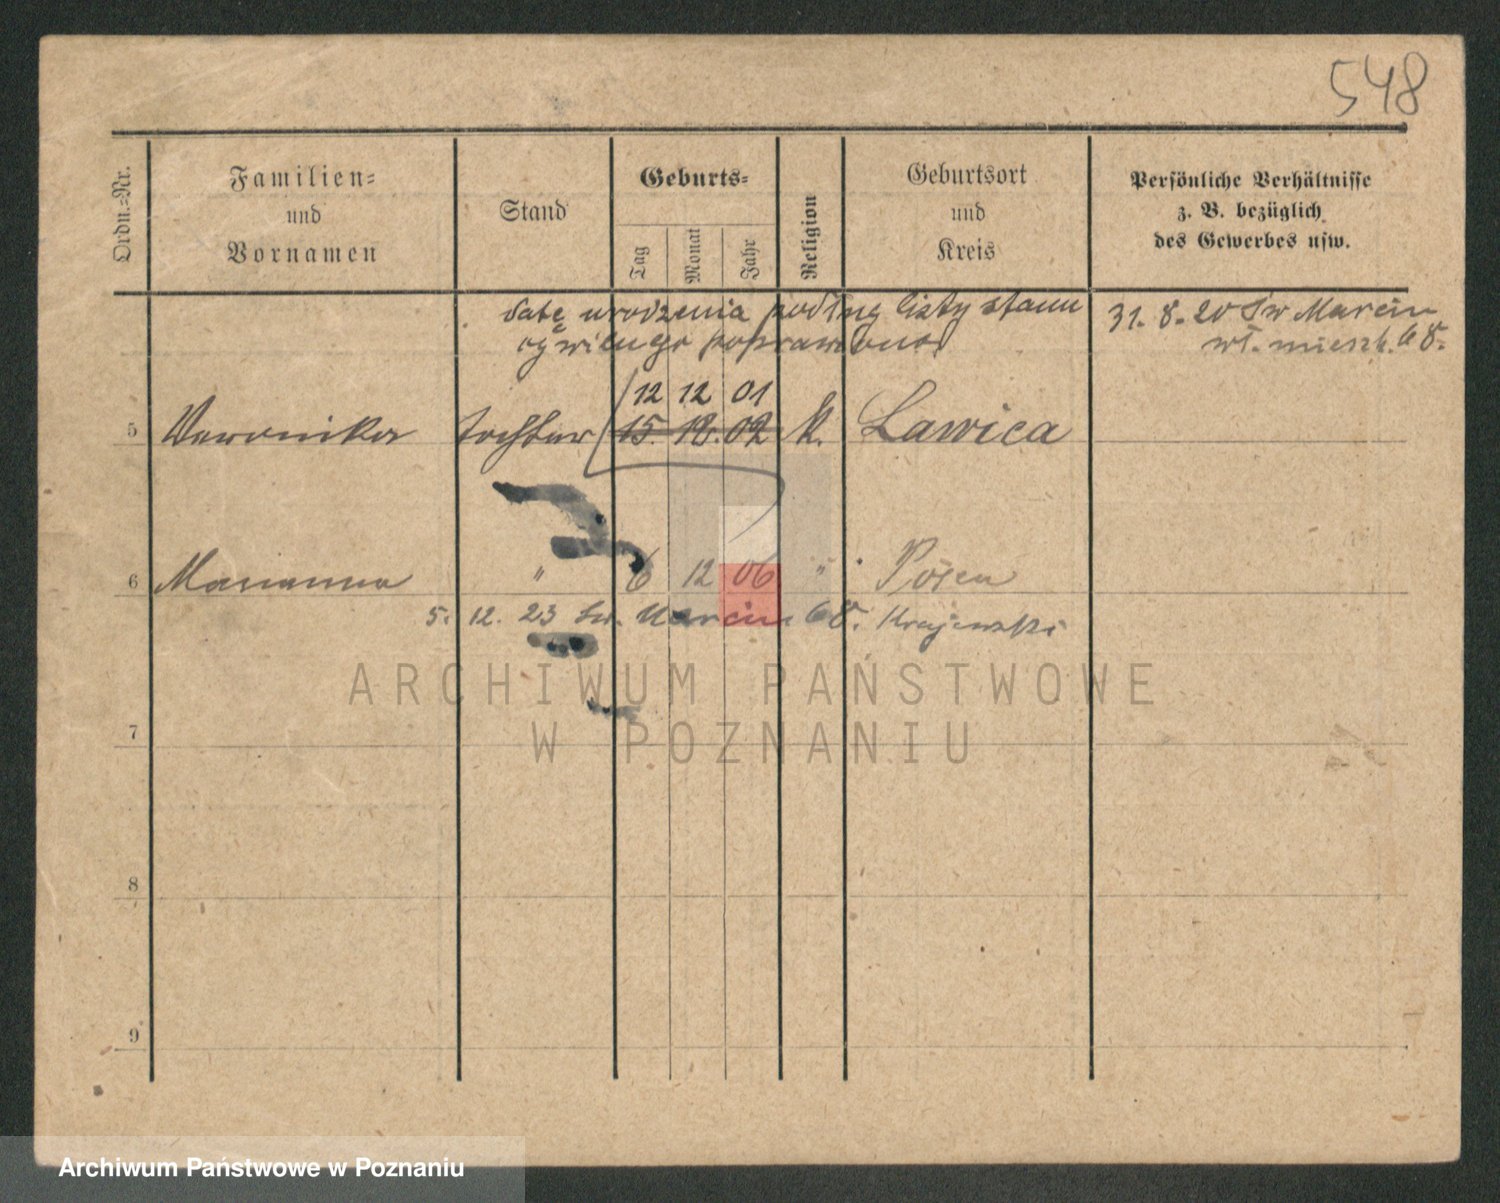 548
Ordn.=Nr.
Familien= und Vornamen
Stand
Geburts=
Tag Monat Jahr
Religion
Geburtsort und Kreis
Persönliche Verhältnisse z. B. bezüglich des Gewerbes usw.
datę urodzenia podług listy stanu
cywilnego poprawiono
31. 8. 20 Św Marcin
wł. mieszk. 68.
12 12 01
5 Weronika Tochter 15. 12. 02 k. Ławica
6 Marianna " 6 12 06 " Posen
5. 12. 23 Św. Marcin 68. Krajewski
7
8
9
ARCHIWUM PAŃSTWOWE
W POZNANIU
Archiwum Państwowe w Poznaniu